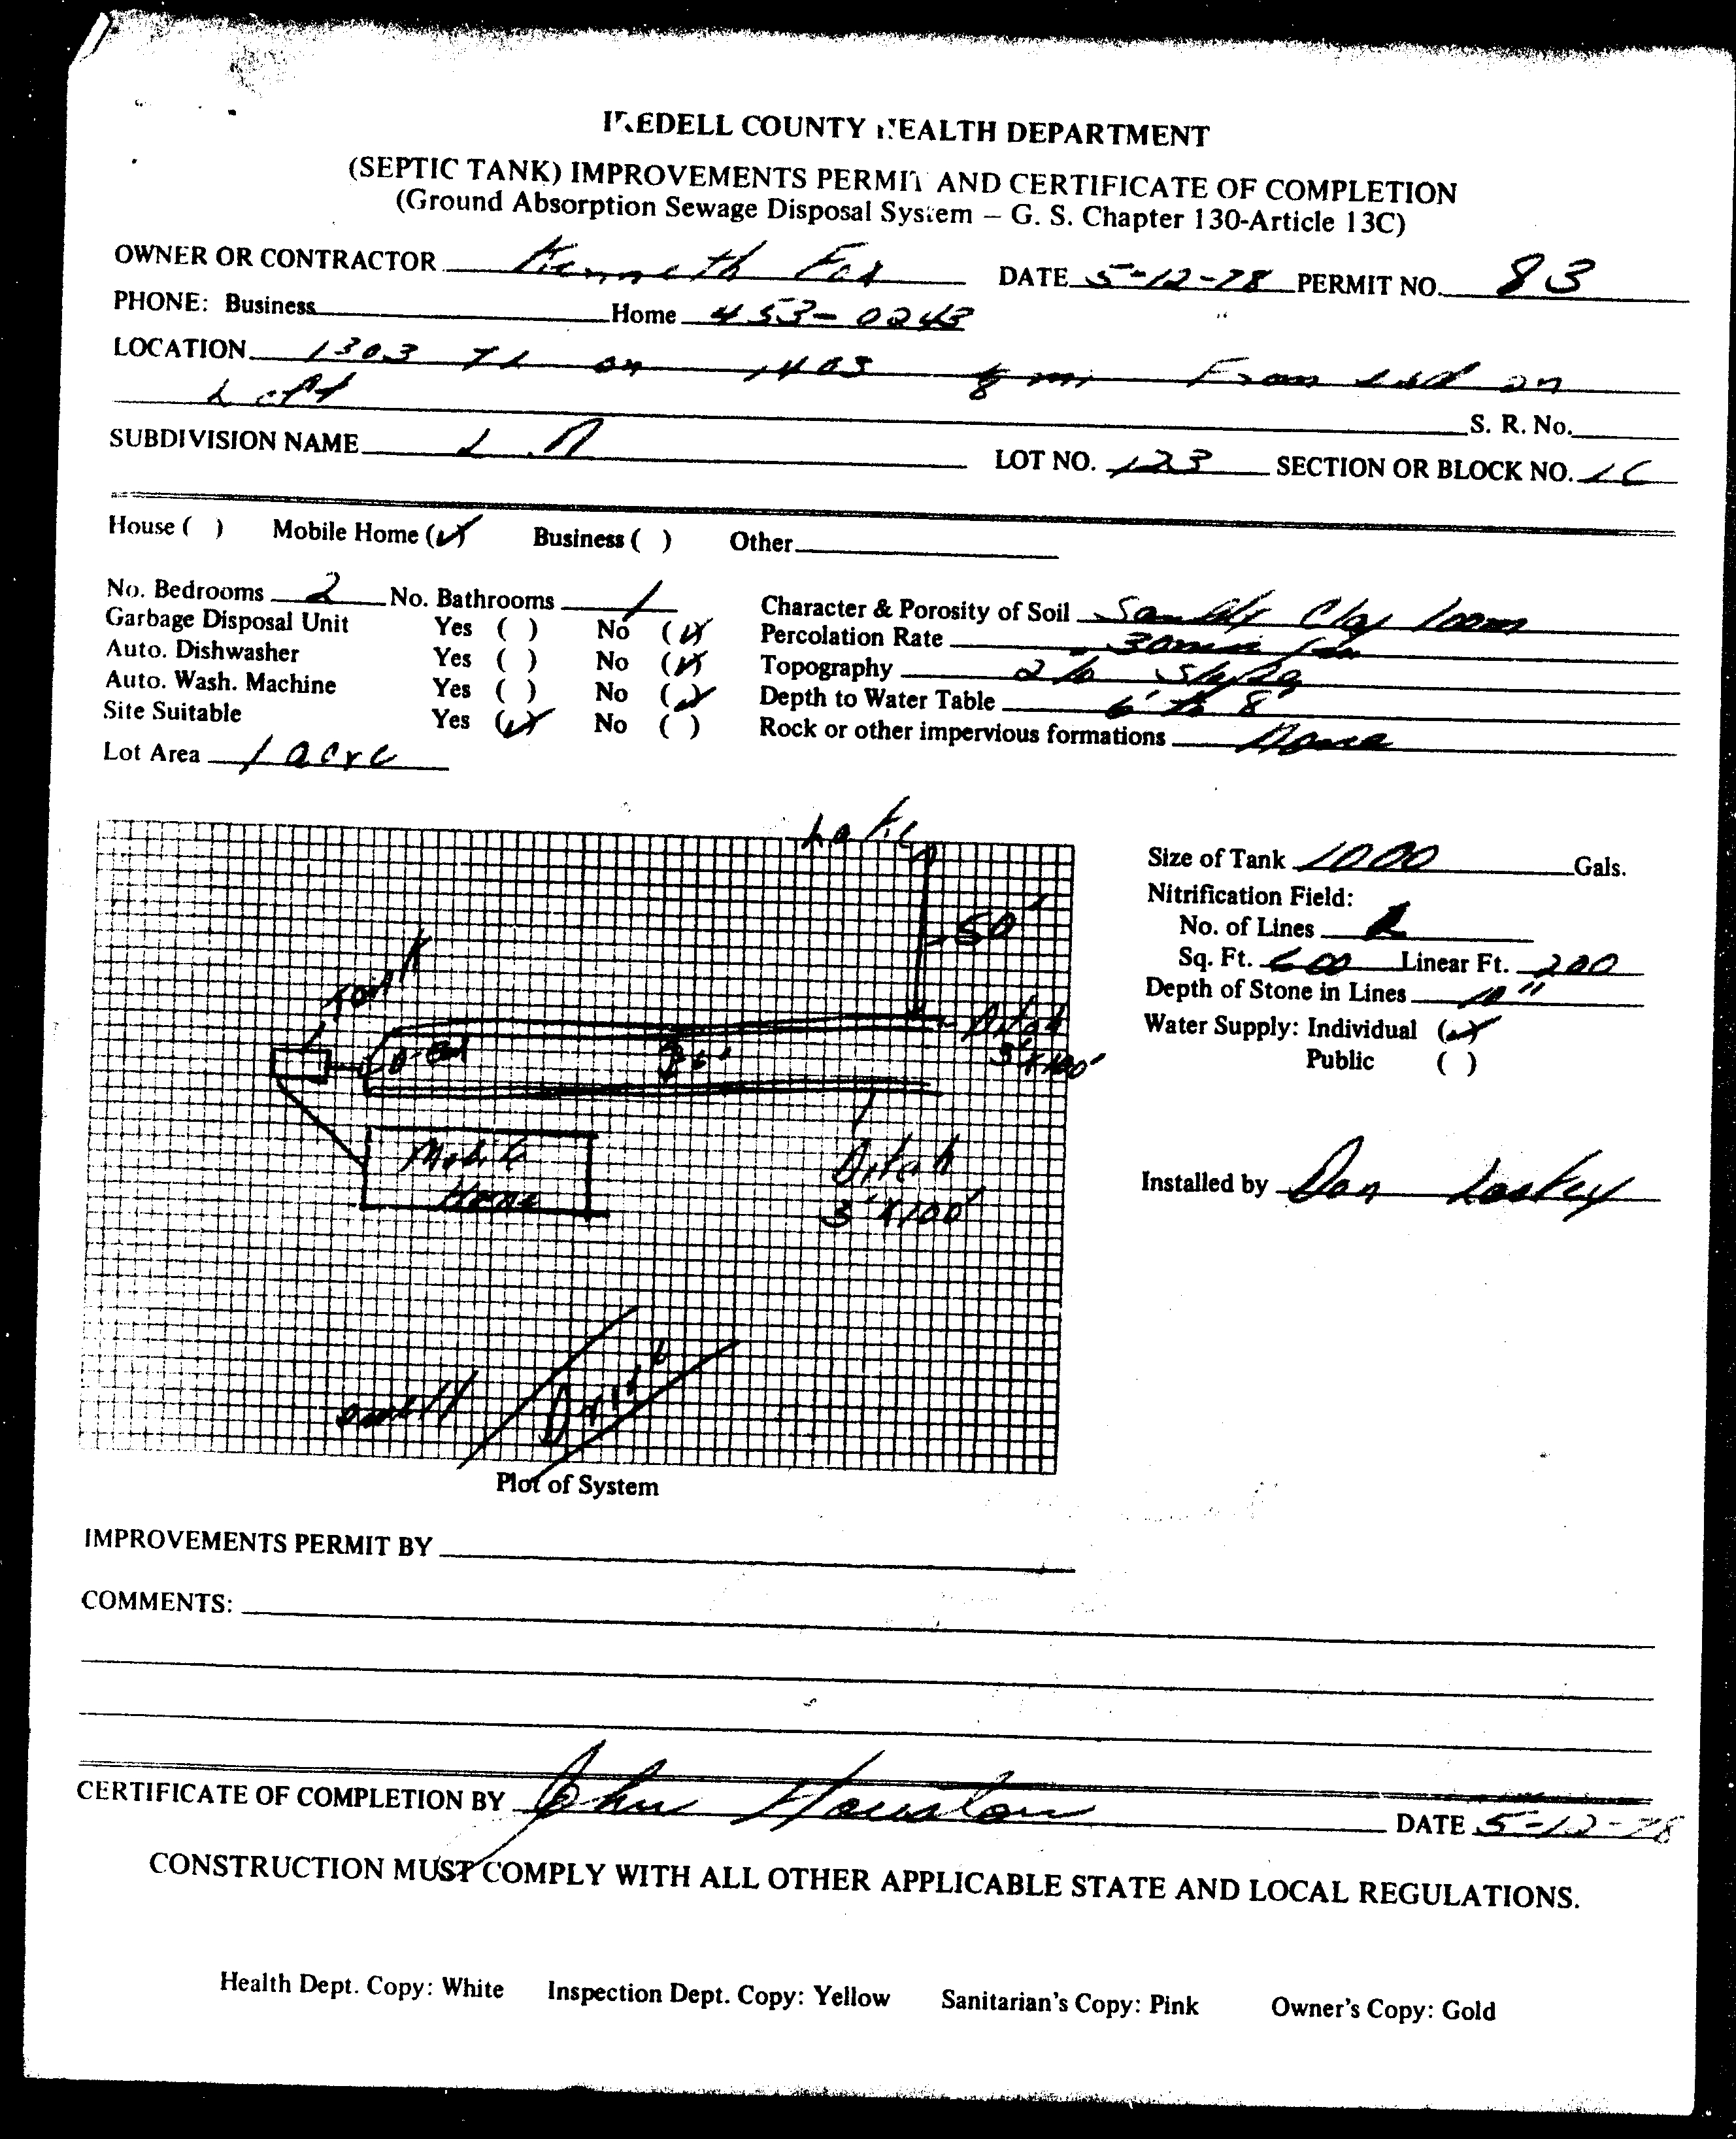 IREDELL COUNTY HEALTH DEPARTMENT
(SEPTIC TANK) IMPROVEMENTS PERMIT AND CERTIFICATE OF COMPLETION
(Ground Absorption Sewage Disposal System — G. S. Chapter 130-Article 13C)
OWNER OR CONTRACTOR Kenneth Fox DATE 5-12-78 PERMIT NO. 83
PHONE: Business Home 453-0243
LOCATION 1303 TL on 1403 1/8 mi From end on
Left
S. R. No.
SUBDIVISION NAME L N LOT NO. 123 SECTION OR BLOCK NO. 1C
House ( ) Mobile Home (✓) Business ( ) Other
No. Bedrooms 2 No. Bathrooms 1
Garbage Disposal Unit Yes ( ) No (✓)
Auto. Dishwasher Yes ( ) No (✓)
Auto. Wash. Machine Yes ( ) No (✓)
Site Suitable Yes (✓) No ( )
Lot Area 1 acre
Character & Porosity of Soil Sandy Clay loam
Percolation Rate 30 min / in
Topography 2% Slope
Depth to Water Table 6' to 8'
Rock or other impervious formations None
Lake
50'
Tank
Ditch
3' X 100'
6'
Mobile
Home
Ditch
3' X 100'
well
Drive
Plot of System
Size of Tank 1000 Gals.
Nitrification Field:
No. of Lines 2
Sq. Ft. 600 Linear Ft. 200
Depth of Stone in Lines 10"
Water Supply: Individual (✓)
Public ( )
Installed by Dan Laskey
IMPROVEMENTS PERMIT BY
COMMENTS:
CERTIFICATE OF COMPLETION BY John Houston DATE 5-12-78
CONSTRUCTION MUST COMPLY WITH ALL OTHER APPLICABLE STATE AND LOCAL REGULATIONS.
Health Dept. Copy: White Inspection Dept. Copy: Yellow Sanitarian's Copy: Pink Owner's Copy: Gold